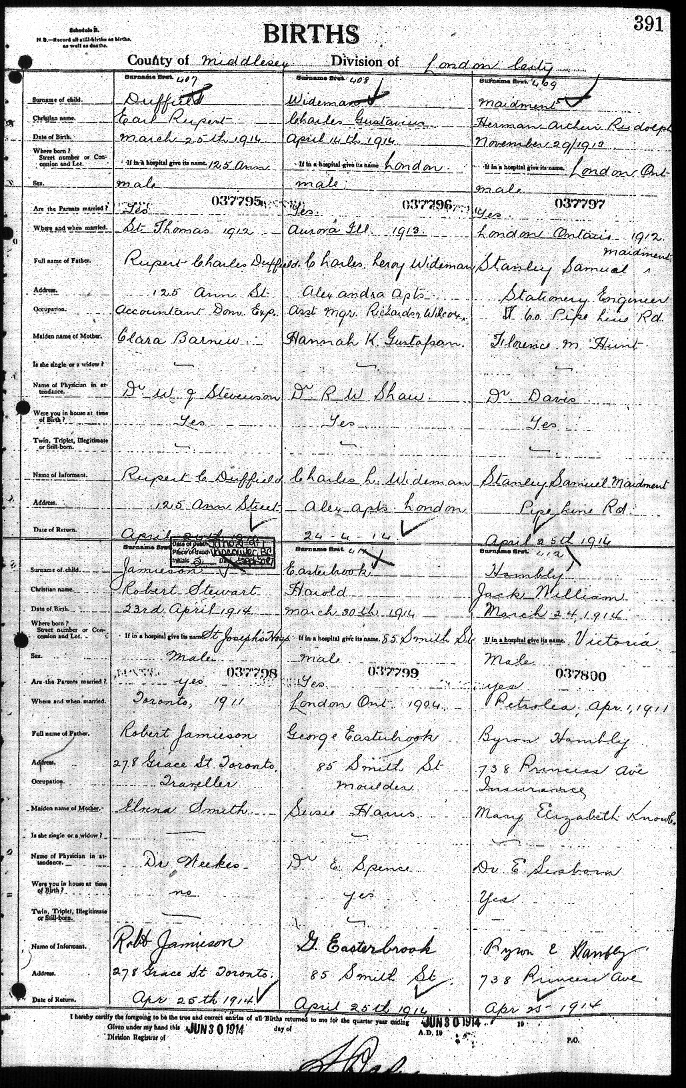 391
Schedule B.
N. B.—Record all still-births as births, as well as deaths.
BIRTHS
County of Middlesex Division of London City
Surname first. 407 Surname first. 408 Surname first. 409
Surname of child. Duffield Wideman Maidment
Christian name. Earl Rupert Charles Gustavus Herman Arthur Rudolph
Date of Birth. March 25th 1914 April 14th 1914 November 29/1913
Where born? Street number or Concession and Lot. If in a hospital give its name. 125 Ann If in a hospital give its name. London If in a hospital give its name. London Ont
Sex. male male male
037795 037796 037797
Are the Parents married? Yes Yes. Yes
Where and when married. St Thomas 1912 Aurora Ill 1913. London Ontario 1912
Full name of Father. Rupert Charles Duffield. Charles Leroy Wideman Stanley Samuel Maidment
Address. 125 Ann St Alexandra Apts Stationery Engineer
Occupation. Accountant Dom. Exp. Asst Mgr. Richards Wilcox. Pipe Line Rd.
Maiden name of Mother. Clara Hannah K. Florence M Hunt
Is she single or a widow?
Name of Physician in attendance. Dr W J Stevenson Dr R W Shaw Dr Davis
Were you in house at time of Birth? Yes Yes Yes
Twin, Triplet, Illegitimate or Still-born.
Name of Informant. Rupert C Duffield Charles L. Wideman Stanley Samuel Maidment
Address. 125 Ann Street Alex apts London Pipe Line Rd.
Date of Return. April 24-4-14 April 25th 1914
Date of death
Place of death Vancouver, BC
Surname first. Surname first. Surname first. 412
Surname of child. Jamieson Easterbrook Hambly
Christian name. Robert Stewart Harold Jack William
Date of Birth. 23rd April 1914 March 30th 1914 March 24, 1914
Where born? Street number or Concession and Lot. If in a hospital give its name. St Joseph's Hosp If in a hospital give its name. 85 Smith St If in a hospital give its name. Victoria
Sex. Male male Male
037798 037799 037800
Are the Parents married? yes Yes yes
Where and when married. Toronto, 1911 London Ont. 1904 Petrolea, Apr. 1, 1911
Full name of Father. Robert Jamieson George Easterbrook Byron Hambly
Address. 278 Grace St. Toronto. 85 Smith St 738 Princess Ave
Occupation. Traveller moulder Insurance
Maiden name of Mother. Smith Susie Harris Mary Elizabeth
Is she single or a widow?
Name of Physician in attendance. Dr Weekes Dr E Spence Dr. E Seaborn
Were you in house at time of Birth? no yes Yes
Twin, Triplet, Illegitimate or Still-born.
Name of Informant. Robt Jamieson G. Easterbrook Byron E Hambly
Address. 278 Grace St Toronto. 85 Smith St. 738 Princess Ave
Date of Return. Apr 25th 1914 April 25th 1914 Apr 25-1914
I hereby certify the foregoing to be the true and correct entries of all Births returned to me for the quarter year ending JUN 30 1914 19
Given under my hand this JUN 30 1914 day of A.D. 19
Division Registrar of P.O.